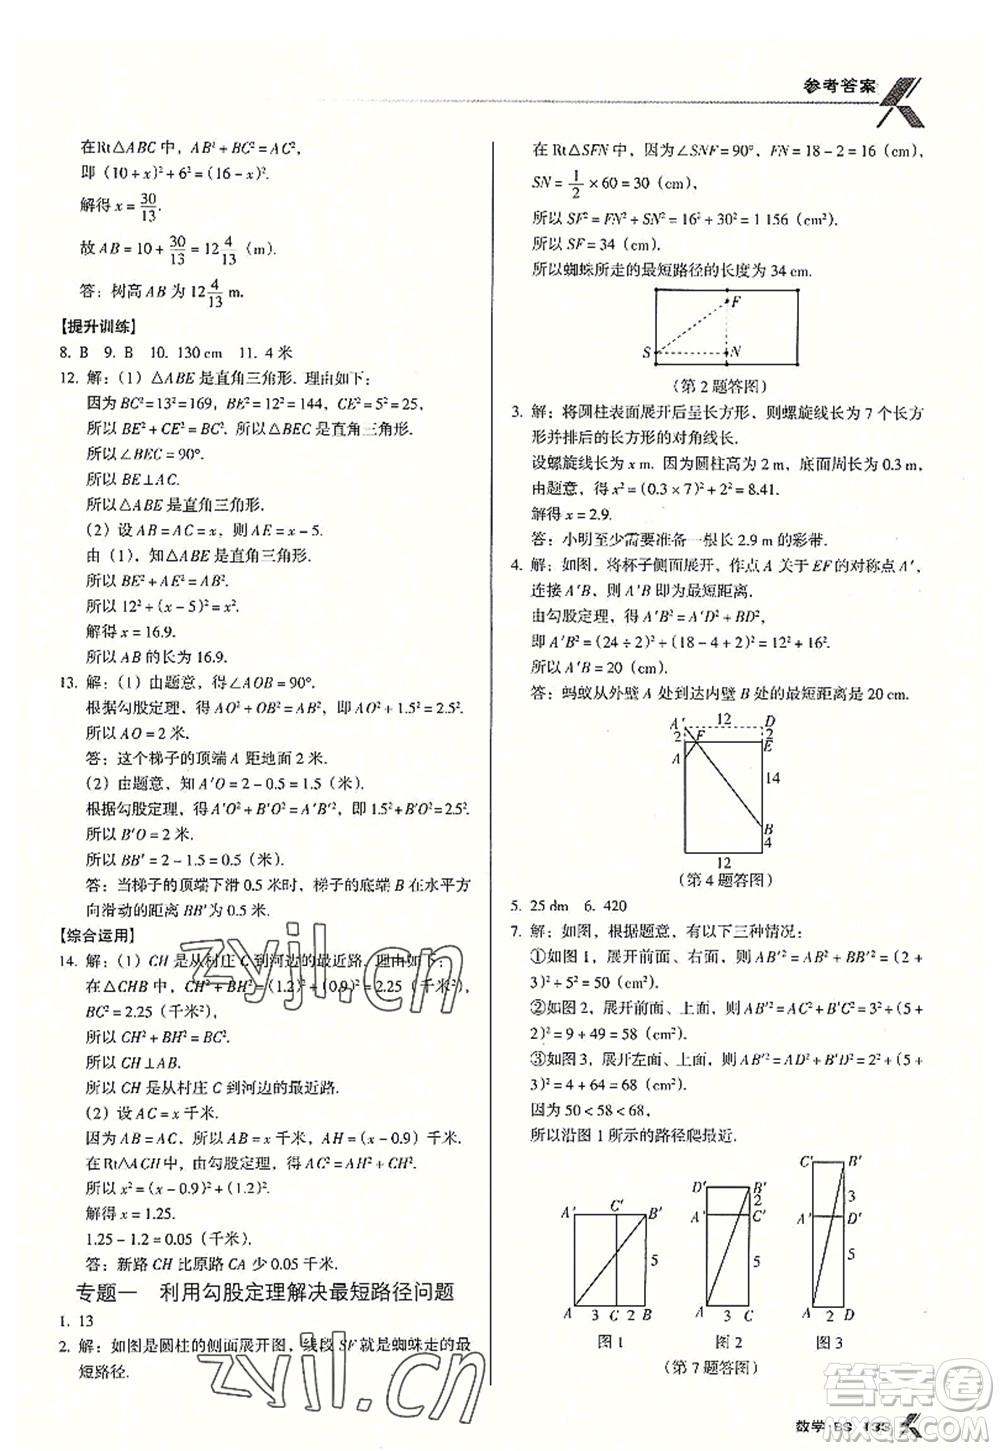 参考答案
在Rt△ABC中，AB²+BC²=AC²，
即（10+x）²+6²=（16-x）².
解得x=30/13.
故AB=10+30/13=12 4/13（m）.
答：树高AB为12 4/13 m.
【提升训练】
8. B 9. B 10. 130 cm 11. 4米
12. 解：（1）△ABE是直角三角形. 理由如下：
因为BC²=13²=169，BE²=12²=144，CE²=5²=25，
所以BE²+CE²=BC². 所以△BEC是直角三角形.
所以∠BEC=90°.
所以BE⊥AC.
所以△ABE是直角三角形.
（2）设AB=AC=x，则AE=x-5.
由（1），知△ABE是直角三角形.
所以BE²+AE²=AB².
所以12²+（x-5）²=x².
解得x=16.9.
所以AB的长为16.9.
13. 解：（1）由题意，得∠AOB=90°.
根据勾股定理，得AO²+OB²=AB²，即AO²+1.5²=2.5².
所以AO=2米.
答：这个梯子的顶端A距地面2米.
（2）由题意，知A′O=2-0.5=1.5（米）.
根据勾股定理，得A′O²+B′O²=A′B′²，即1.5²+B′O²=2.5².
所以B′O=2米.
所以BB′=2-1.5=0.5（米）.
答：当梯子的顶端下滑0.5米时，梯子的底端B在水平方
向滑动的距离BB′为0.5米.
【综合运用】
14. 解：（1）CH是从村庄C到河边的最近路. 理由如下：
在△CHB中，CH²+BH²=（1.2）²+（0.9）²=2.25（千米²），
BC²=2.25（千米²），
所以CH²+BH²=BC².
所以CH⊥AB.
所以CH是从村庄C到河边的最近路.
（2）设AC=x千米.
因为AB=AC，所以AB=x千米，AH=（x-0.9）千米.
在Rt△ACH中，由勾股定理，得AC²=AH²+CH².
所以x²=（x-0.9）²+（1.2）².
解得x=1.25.
1.25-1.2=0.05（千米）.
答：新路CH比原路CA少0.05千米.
专题一 利用勾股定理解决最短路径问题
1. 13
2. 解：如图是圆柱的侧面展开图，线段SF就是蜘蛛走的最
短路径.
在Rt△SFN中，因为∠SNF=90°，FN=18-2=16（cm），
SN=1/2×60=30（cm），
所以SF²=FN²+SN²=16²+30²=1 156（cm²）.
所以SF=34（cm）.
所以蜘蛛所走的最短路径的长度为34 cm.
F
S N
（第2题答图）
3. 解：将圆柱表面展开后呈长方形，则螺旋线长为7个长方
形并排后的长方形的对角线长.
设螺旋线长为x m. 因为圆柱高为2 m，底面周长为0.3 m，
由题意，得x²=（0.3×7）²+2²=8.41.
解得x=2.9.
答：小明至少需要准备一根长2.9 m的彩带.
4. 解：如图，将杯子侧面展开，作点A关于EF的对称点A′，
连接A′B，则A′B即为最短距离.
由勾股定理，得A′B²=A′D²+BD²，
即A′B²=（24÷2）²+（18-4+2）²=12²+16².
所以A′B=20（cm）.
答：蚂蚁从外壁A处到达内壁B处的最短路径是20 cm.
A′ 12 D
2 F 2
E
A
14
B
4
12
（第4题答图）
5. 25 dm 6. 420
7. 解：如图，根据题意，有以下三种情况：
①如图1，展开前面、右面，则AB′²=AB²+BB′²=（2+
3）²+5²=50（cm²）；
②如图2，展开前面、上面，则AB′²=AC²+B′C²=（2+
5）²+3²=9+49=58（cm²）；
③如图3，展开左面、上面，则AB′²=AD²+B′D²=2²+（5+
3）²=4+64=68（cm²）.
因为50<58<68，
所以沿图1所示的路径爬最近.
A′ C′ B′
5
A 3 C 2 B
图1
D′ B′
2
A′ C′
5
A 3 C
图2
C′ B′
3
A′ D′
5
A 2 D
图3
（第7题答图）
zyjl.cn
zyjl.cn
答案圈
数学·BS 135